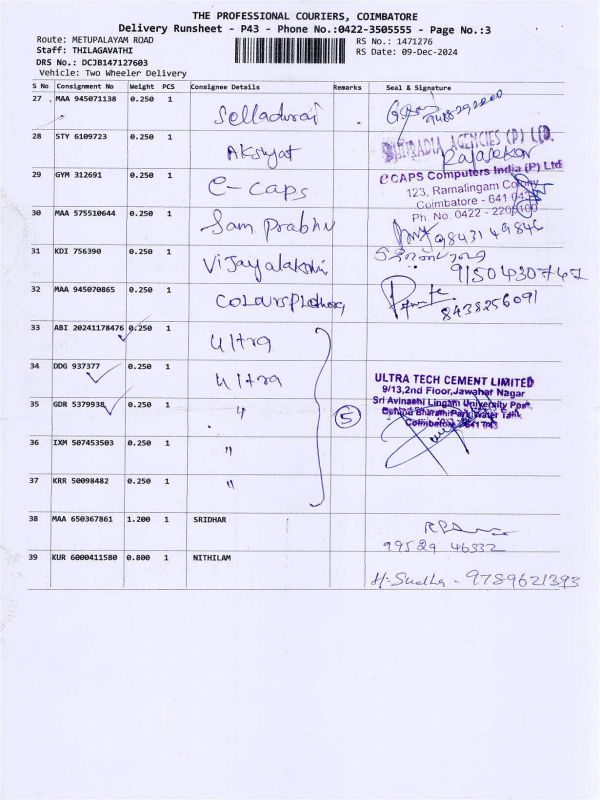 THE PROFESSIONAL COURIERS, COIMBATORE
Delivery Runsheet - P43 - Phone No.:0422-3505555 - Page No.:3
Route: METUPALAYAM ROAD RS No.: 1471276
Staff: THILAGAVATHI RS Date: 09-Dec-2024
DRS No.: DCJB147127603
Vehicle: Two Wheeler Delivery
S No Consignment No Weight PCS Consignee Details Remarks Seal & Signature
27 MAA 945071138 0.250 1 Selladurai
28 STY 6109723 0.250 1 Akshyat AGENCIES (P) LTD.
Rajasekar
29 GYM 312691 0.250 1 e-caps eCAPS Computers India (P) Ltd
123, Ramalingam Colony
Coimbatore - 641
Ph. No. 0422 -
30 MAA 575510644 0.250 1 Sam Prabhu 9843149846
31 KDI 756390 0.250 1 Vijayalakshmi
9150430747
32 MAA 945070865 0.250 1 8438256091
33 ABI 20241178476 0.250 1 Ultra
34 DDG 937377 0.250 1 Ultra ULTRA TECH CEMENT LIMITED
9/13,2nd Floor,Jawahar Nagar
35 GDR 5379938 0.250 1 " 5 Sri Avinashi Lingam University Post,
Bharathi Park Water Tank
Coimbatore - 641 043
36 IXM 507453503 0.250 1 "
37 KRR 50098482 0.250 1 "
38 MAA 650367861 1.200 1 SRIDHAR
99529 46332
39 KUR 6000411580 0.800 1 NITHILAM
H. Sudha - 9789621393